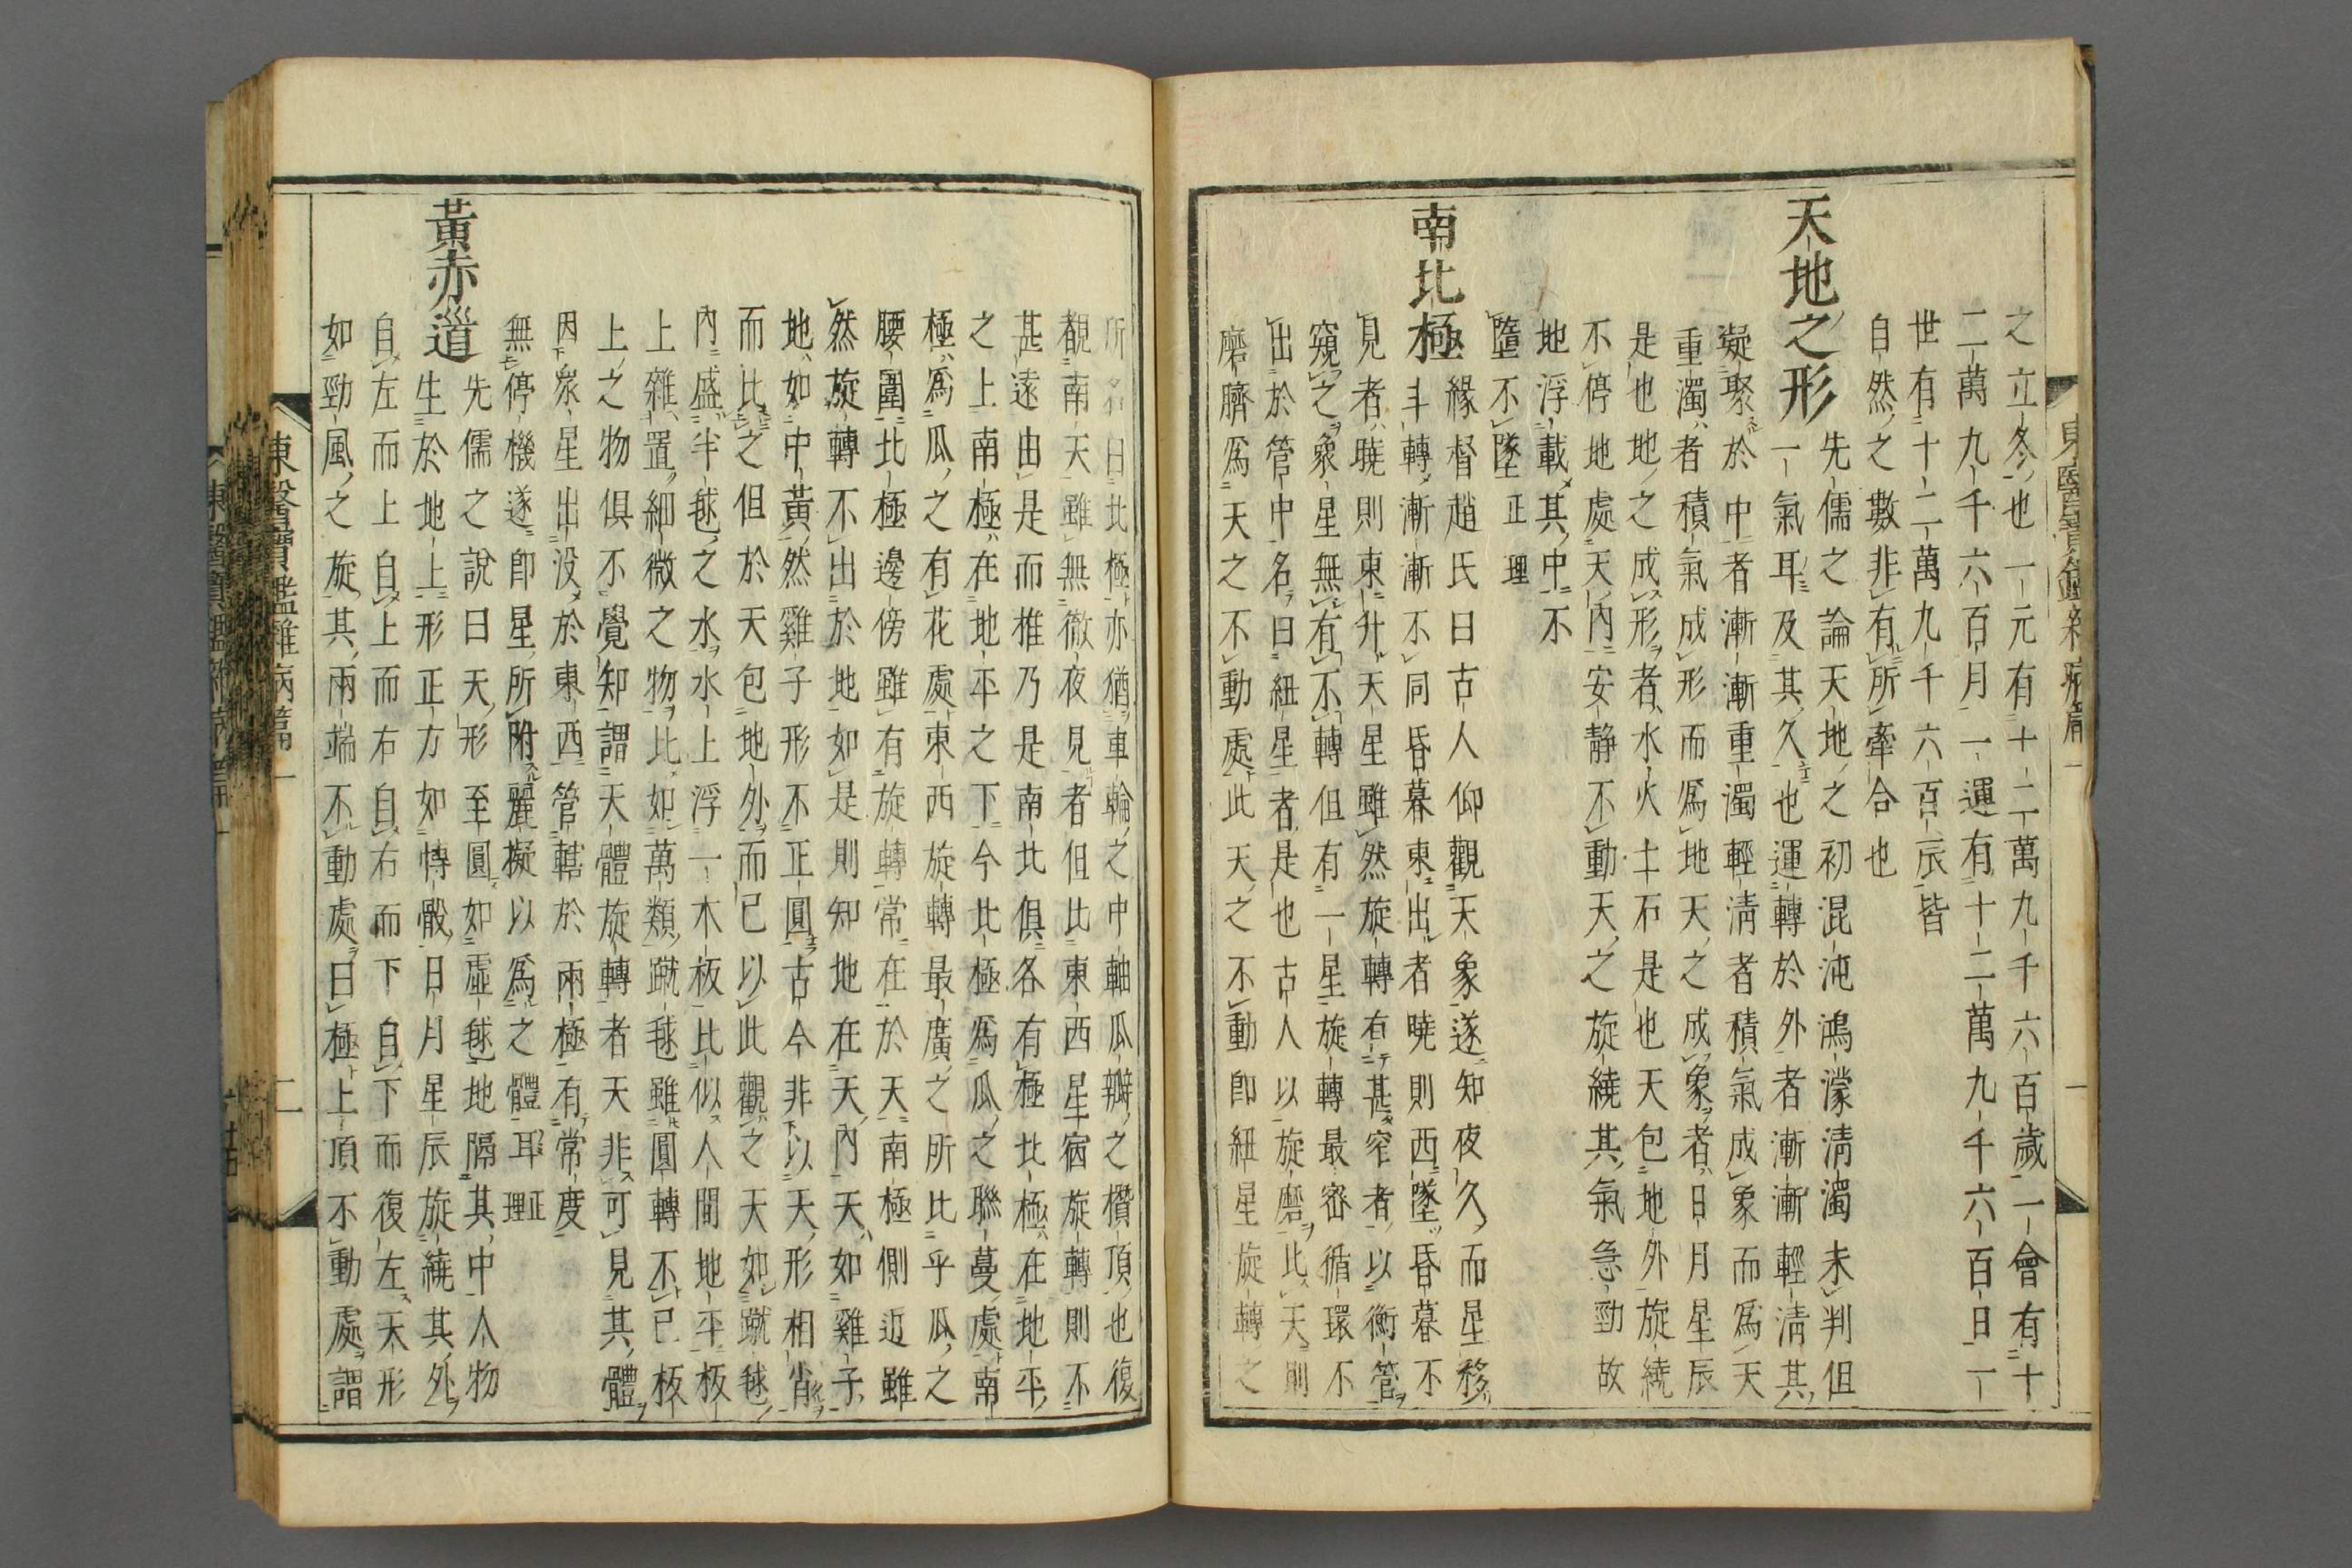 之立冬也一元有十二萬九千六百歲一會有十
二萬九千六百月一運有十二萬九千六百日一
世有十二萬九千六百辰皆
自然之數非有所牽合也
天地之形
先儒之論天地之初混沌鴻濛淸濁未判但
一氣耳及其久也運轉於外者漸漸輕淸其
凝聚於中者漸漸重濁輕淸者積氣成象而爲天
重濁者積氣成形而爲地天之成象者日月星辰
是也地之成形者水火土石是也天包地外旋繞
不停地處天內安靜不動天之旋繞其氣急勁故
地浮載其中不
墮不墜正理
南北極
緣督趙氏曰古人仰觀天象遂知夜久而星移
斗轉漸漸不同昏暮東出者曉則西墜昏暮不
見者曉則東升天星雖然旋轉右甚窄者以衡管
窺之衆星無有不轉但有一星旋轉最密循環不
出於管中名曰紐星者是也古人以旋磨比天則
磨臍爲天之不動處此天之不動卽紐星旋轉之
所名曰北極亦猶車輪之中軸瓜瓣之攢頂也復
觀南天雖無徹夜見者但比東西星宿旋轉則不
甚遠由是而推乃是南北俱各有極北極在地平
之上南極在地平之下今北極爲瓜之聯蔓處南
極爲瓜之有花處東西旋轉最廣之所比乎瓜之
腰圍北極邊傍雖有旋轉常在於天南極側近雖
然旋轉不出於地如是則知地在天內天如雞子
地如中黃然雞子形不正圓古今非以天形相肖
而比之但於天包地外而已以此觀之天如蹴毬
內盛半毬之水水上浮一木板比似人間地平板
上雜置細微之物比如萬類蹴毬雖圓轉不已板
上之物俱不覺知謂天體旋轉者天非可見其體
因衆星出沒於東西管轄於兩極有常度
無停機遂卽星所附麗擬以爲之體耳正理
黃赤道
先儒之說曰天形至圓如虛毬地隔其中人物
生於地上形正方如愽骰日月星辰旋繞其外
自左而上自上而右自右而下自下而復左天形
如勁風之旋其兩端不動處曰極上頂不動處謂
東醫寶鑑雜病篇一
二